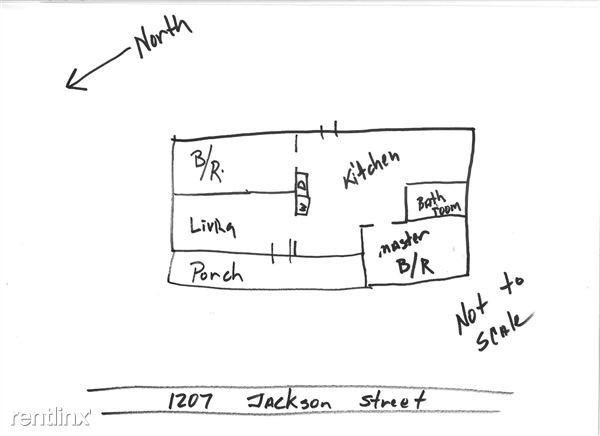 North
B/R.
Kitchen
D
W
Bath
room
Living
master
B/R
Porch
Not to
scale
1207 Jackson Street
rentlinx